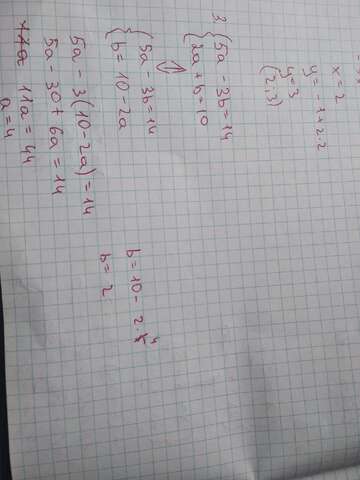 x = 2
y = -1 + 2·2
y = 3
(2;3)
3 { 5a - 3b = 14
2a + b = 10
⇕
{ 5a - 3b = 14
b = 10 - 2a
5a - 3(10 - 2a) = 14
5a - 30 + 6a = 14
11a = 44
a = 4
b = 10 - 2·4
b = 2